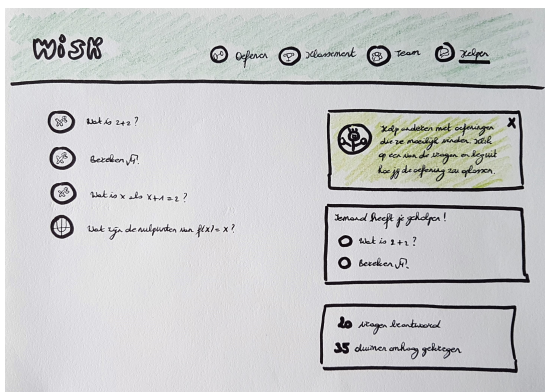 wisk
Oefenen Klassement Team Helpen
Wat is 2+2?
Bereken √1.
Wat is x als x+1=2?
Wat zijn de nulpunten van f(x)=x?
X
Help anderen met oefeningen
die ze moeilijk vinden. Klik
op een van de vragen en leg uit
hoe jij de oefening zou oplossen.
Iemand heeft je geholpen!
Wat is 2+2?
Bereken √1.
20 vragen beantwoord
35 duimen omhoog gekregen